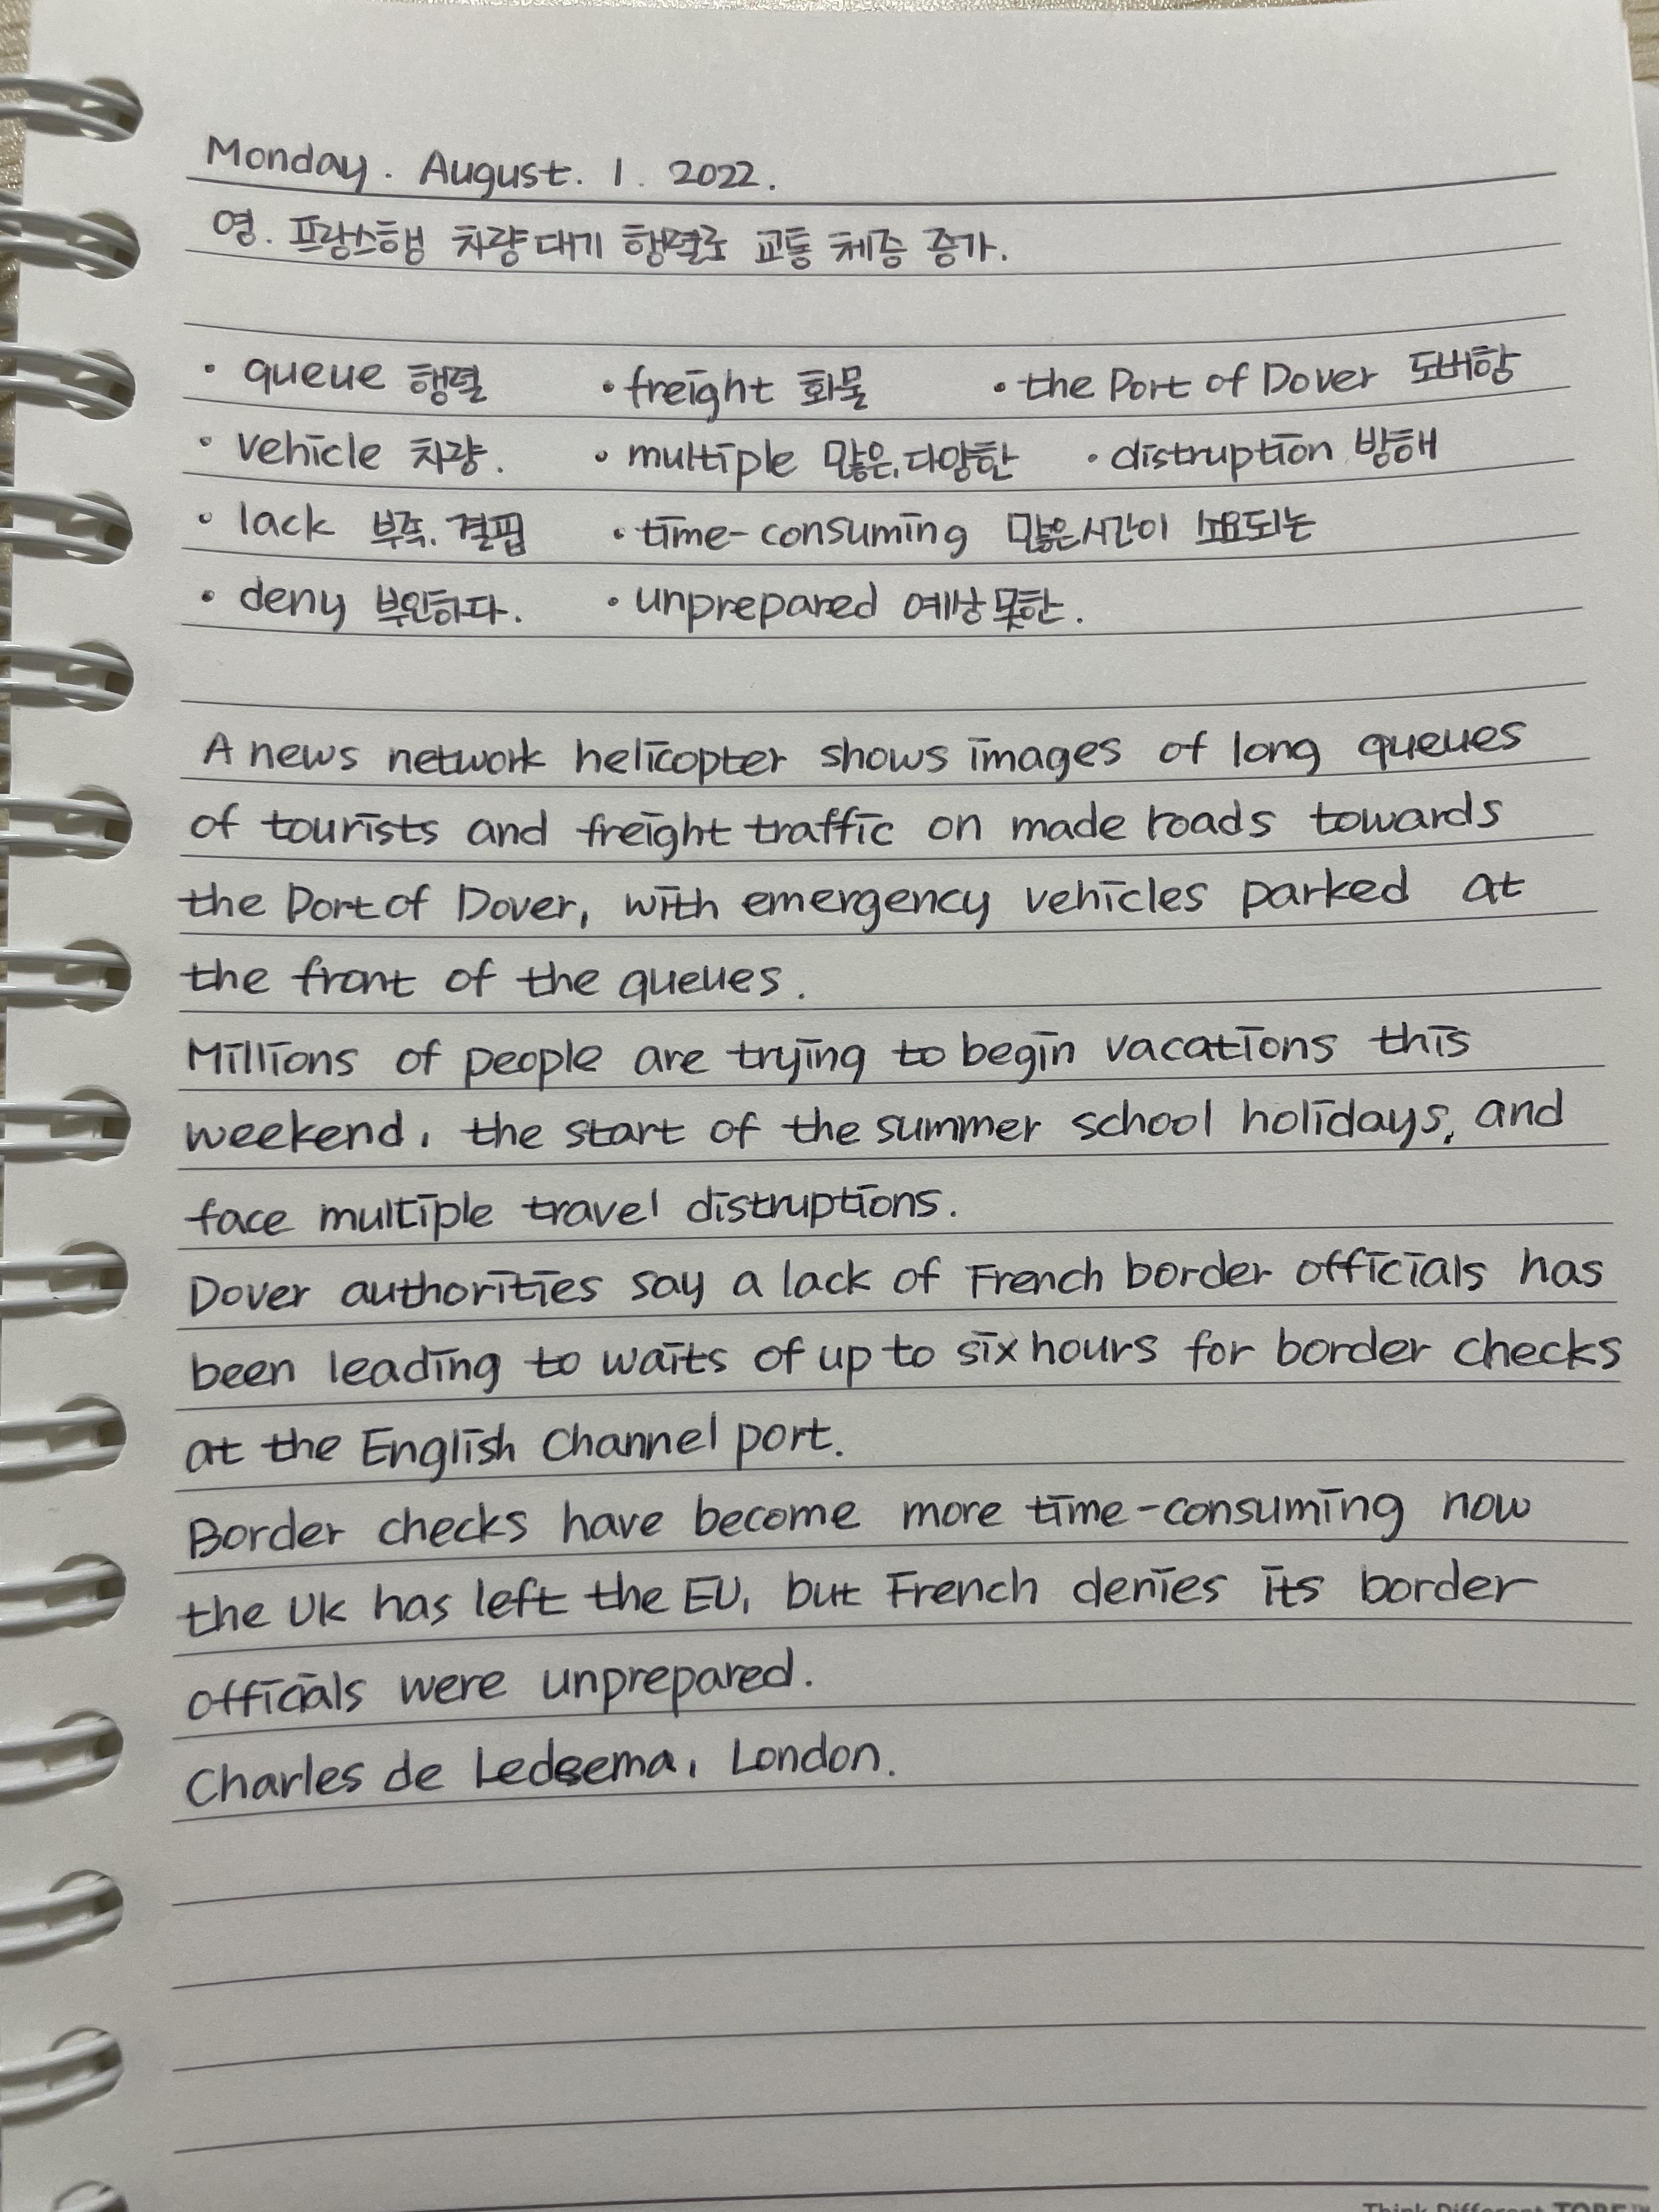 Monday. August. 1. 2022.
영. 프랑스행 차량대기 행렬로 교통 체증 증가.
• queue 행렬 • freight 화물 • the Port of Dover 도버항
• vehicle 차량. • multiple 많은, 다양한 • distruption 방해
• lack 부족. 결핍 • time-consuming 많은시간이 소요되는
• deny 부인하다. • unprepared 예상 못한.
A news network helicopter shows images of long queues
of tourists and freight traffic on made roads towards
the Port of Dover, with emergency vehicles parked at
the front of the queues.
Millions of people are trying to begin vacations this
weekend, the start of the summer school holidays, and
face multiple travel distruptions.
Dover authorities say a lack of French border officials has
been leading to waits of up to six hours for border checks
at the English Channel port.
Border checks have become more time-consuming now
the UK has left the EU, but French denies its border
officials were unprepared.
Charles de Ledesema, London.
Think Different TOBE™